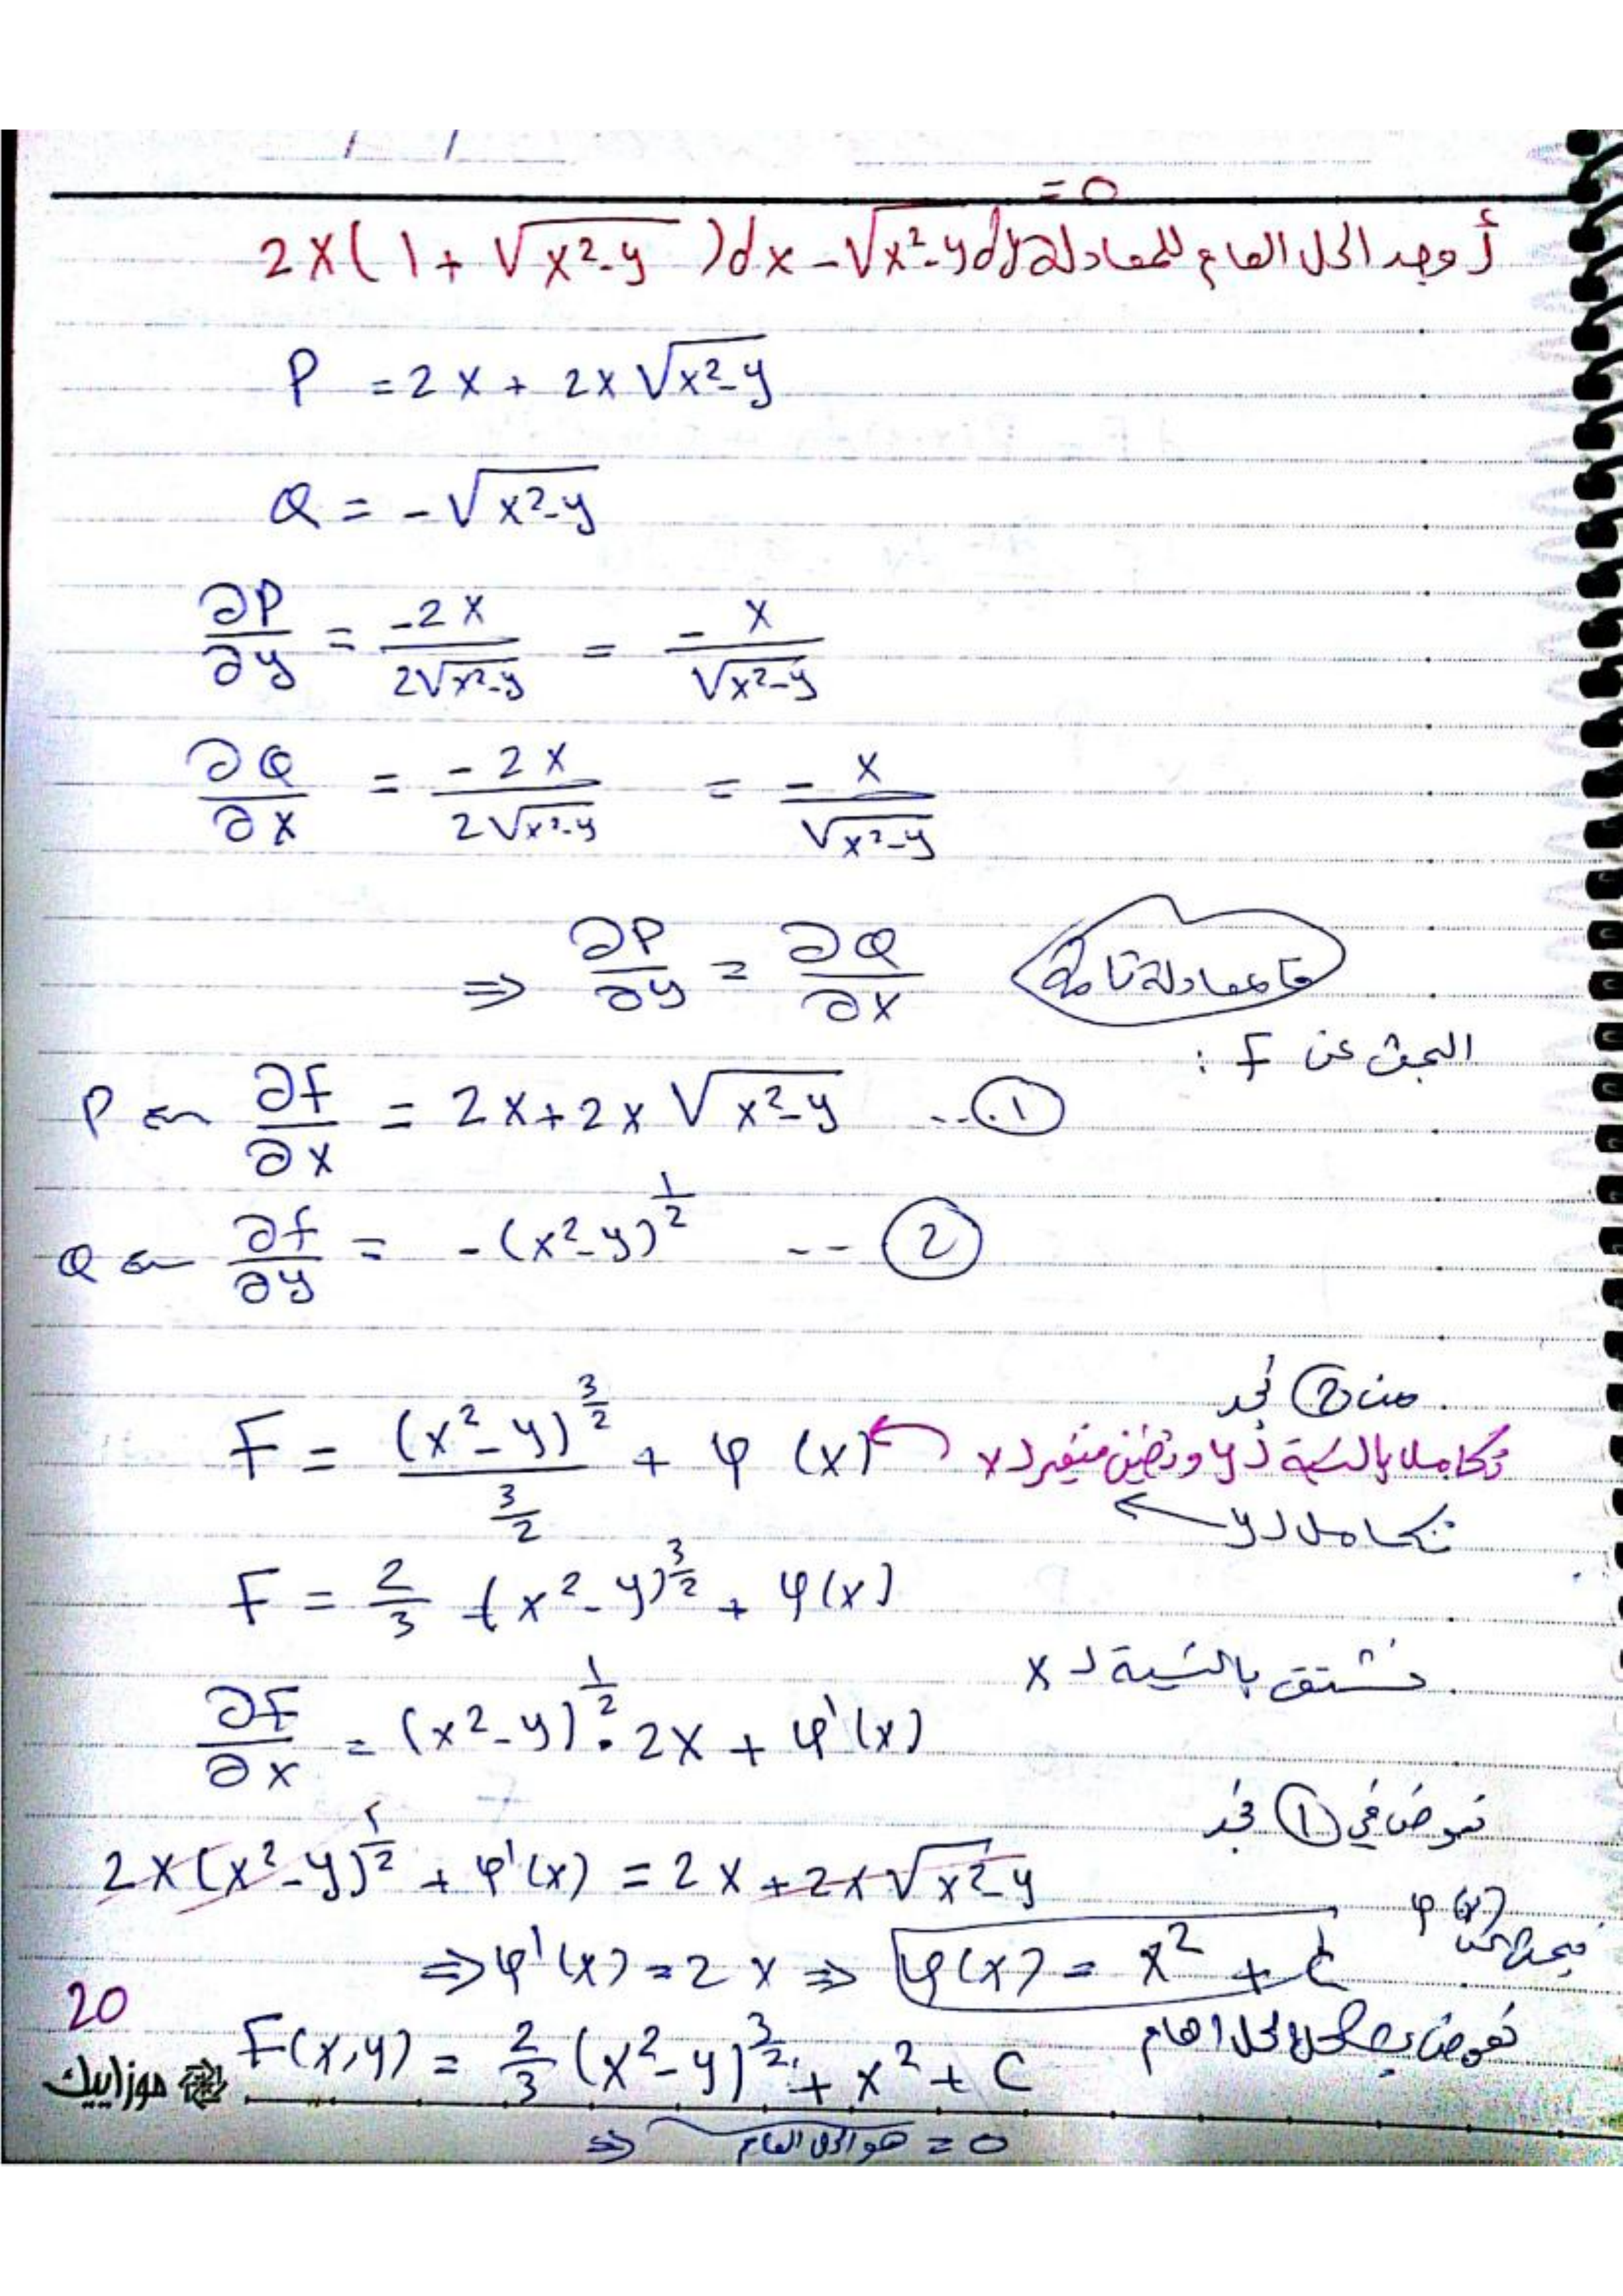 / /
أوجد الحل العام للمعادلة 2x(1+√(x²-y))dx-√(x²-y)dy = 0
P = 2x + 2x√(x²-y)
Q = -√(x²-y)
∂P/∂y = -2x/2√(x²-y) = -x/√(x²-y)
∂Q/∂x = -2x/2√(x²-y) = -x/√(x²-y)
⇒ ∂P/∂y = ∂Q/∂x فالمعادلة تامة
البحث عن F :
P ⇐ ∂f/∂x = 2x+2x√(x²-y) ...①
Q ⇐ ∂f/∂y = -(x²-y)^(1/2) -- ②
من ② نجد
F = (x²-y)^(3/2)/(3/2) + φ(x) ← تكامل بالنسبة لـ y ونضيف متغير لـ x
نكامل لـ y ←
F = 2/3 (x²-y)^(3/2) + φ(x)
نشتق بالنسبة لـ x
∂F/∂x = (x²-y)^(1/2) · 2x + φ'(x)
نعوض في ① نجد
2x(x²-y)^(1/2) + φ'(x) = 2x+2x√(x²-y)
⇒ φ'(x) = 2x ⇒ φ(x) = x² + C φ(x)
نعوض الحل العام
F(x,y) = 2/3 (x²-y)^(3/2) + x² + C
⇒ هو الحل العام = 0
20
موزاييك